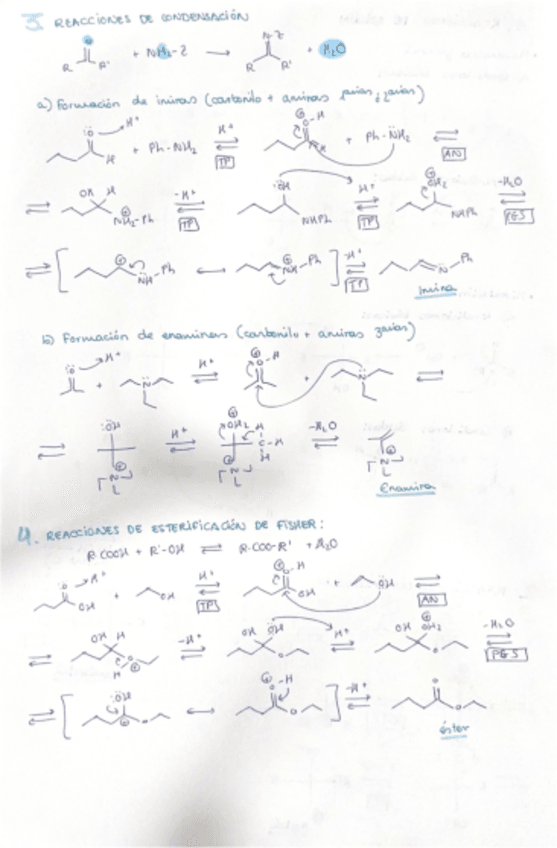 3. REACCIONES DE CONDENSACIÓN
O
R R' + NH₂-Z → N-Z R R' + H₂O
a) Formación de iminas (carbonilo + aminas
H⁺
O H + Ph-NH₂ H⁺ TP O-H H + Ph-NH₂ AN
OH H NH₂-Ph -H⁺ TP OH NHPh H⁺ TP OH₂ NHPh -H₂O PGS
NH-Ph NH-Ph -H⁺ TP N-Ph
Imina
b) Formación de enaminas (carbonilo + aminas
O H⁺ + N H⁺ O-H + N
OH N H⁺ OH₂ H C-H H N -H₂O N
Enamina
4. REACCIONES DE ESTERIFICACIÓN DE FISHER:
R-COOH + R'-OH ⇌ R-COO-R' + H₂O
O H⁺ OH + OH H⁺ TP O-H OH + OH AN
OH H O H -H⁺ OH OH O H⁺ OH OH₂ O -H₂O PGS
OH O O-H O -H⁺ O O
éster